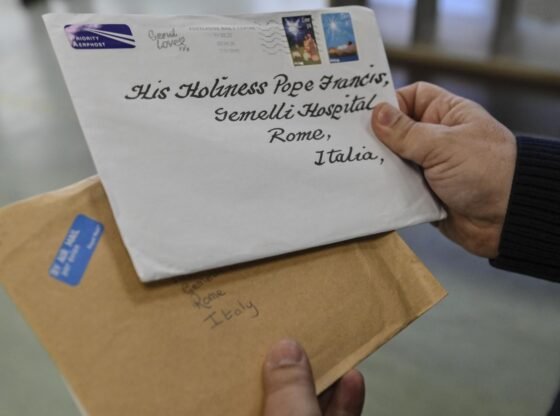 PRIORITY
AERPHOST
Send
Love
His Holiness Pope Francis,
Gemelli Hospital
Rome,
Italia,
BY AIR MAIL
Rome
Italy